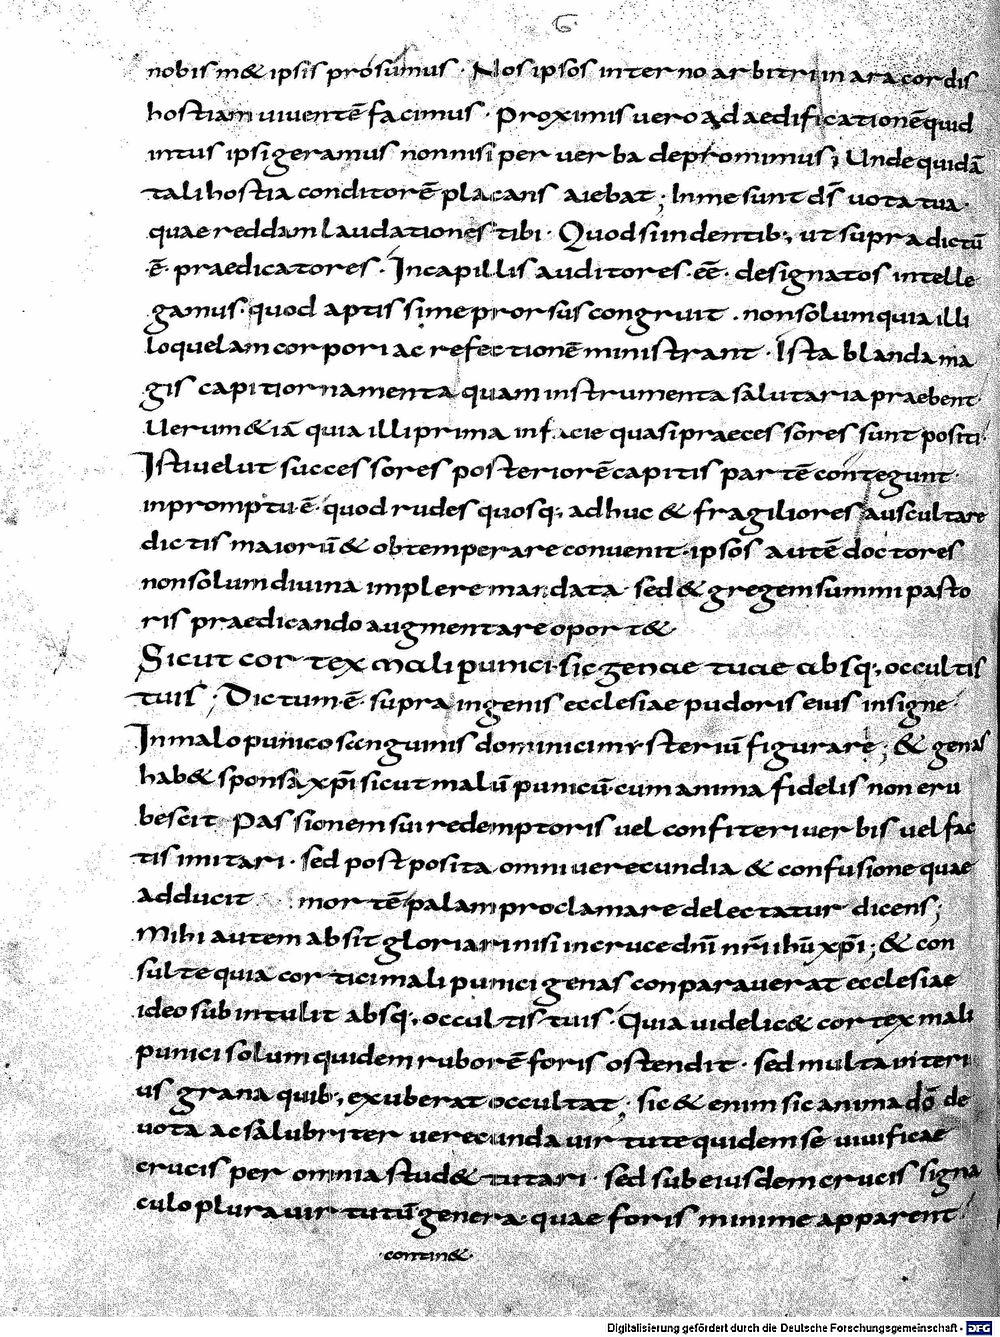 6
nobis m& ipsis prosumus · Nos ipsos interno arbitri in ara cordis
hostiam uiuentē facimus · Proximis uero ad aedificationē quid
intus ipsi geramus non nisi per uerba depromimus; Unde quidā
tali hostia conditorē placans aiebat; In me sunt ds̄ uota tua ·
quae reddam laudationes tibi · Quod si in dentib;, ut supra dictū
·ē· praedicatores · In capillis auditores ·eē· designatos intelle
gamus · quod aptissime prorsus congruit · non solum quia illi
loquelam corpori ac refectionē ministrant · Ista blanda ma
gis capiti ornamenta quam instrumenta salutaria praebent
Uerum & iā quia illi prima in facie quasi praecessores sunt positi ·
Isti uelut successores posteriorē capitis partē contegunt ·
in promptu ·ē· quod rudes quosq; adhuc & fragiliores auscultare
dictis maiorū & obtemperare conuenit · ipsos autē doctores
non solum diuina implere mandata · sed & gregem summi pasto
ris praedicando augmentare oport&
Sicut cortex mali punici · sic genae tuae absq; occultis
tuis; Dictum ·ē· supra in genis ecclesiae pudoris eius insigne ·
In malo punico sanguinis dominici mysteriū figurare; & genas
hab& sponsa xp̄i sicut malū punicū · cum anima fidelis non eru
bescit Passionem sui redemptoris uel confiteri uerbis uel fac
tis imitari · sed postposita omni uerecundia & confusione quae
adducit mortē palam proclamare delectatur dicens;
Mihi autem absit gloriari nisi in cruce dn̄i nr̄i ihū xp̄i; & con
sulte quia cortici mali punici genas conparauerat ecclesiae
ideo subintulit absq; occultis tuis · Quia uidelic& cortex mali
punici solum quidem ruborē foris ostendit · sed multa interi
us grana quib; exuberat occultat; sic & enim sic anima dō de
uota ac salubriter uerecunda uirtute quidem se uiuificae
crucis per omnia stud& tutari · sed sub eiusdem crucis signa
culo plura uirtutū genera · quae foris minime apparent
· contin& ·
Digitalisierung gefördert durch die Deutsche Forschungsgemeinschaft - DFG